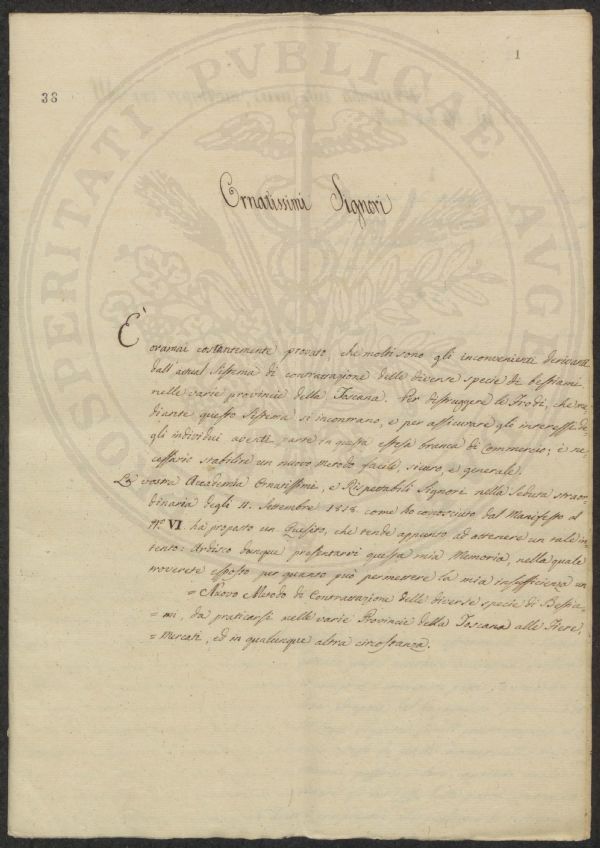 1
38
PROSPERITATI PVBLICAE AVGENDAE
Ornatissimi Signori
E'
oramai costantemente provato, che molti sono gli inconvenienti derivanti
dall'actual Sistema di contrattazione delle diverse specie di bestiami
nelle varie provincie della Toscana. Per distruggere le frodi, che me=
diante questo Sistema si incontrano, e per assicurare gli interessi de=
gli individui aventi parte in questa estesa branca di Commercio; è ne=
cessario stabilire un nuovo metodo facile, sicuro, e generale.
La vostra Accademia Ornatissimi, e Rispettabili Signori nella Seduta straor=
dinaria degli 11. Settembre 1818. come ho conosciuto dal Manifesto al
N.º VI. ha proposto un Quesito, che tende appunto ad ottenere un tale in=
tento: Ardisco dunque presentarvi questa mia Memoria, nella quale
troverete esposto per quanto può permettere la mia insufficienza un
= Nuovo Metodo di Contrattazione delle diverse specie di Bestia=
= mi, da praticarsi nelle varie Provincie della Toscana alle Fiere,
= Mercati, ed in qualunque altra circostanza.